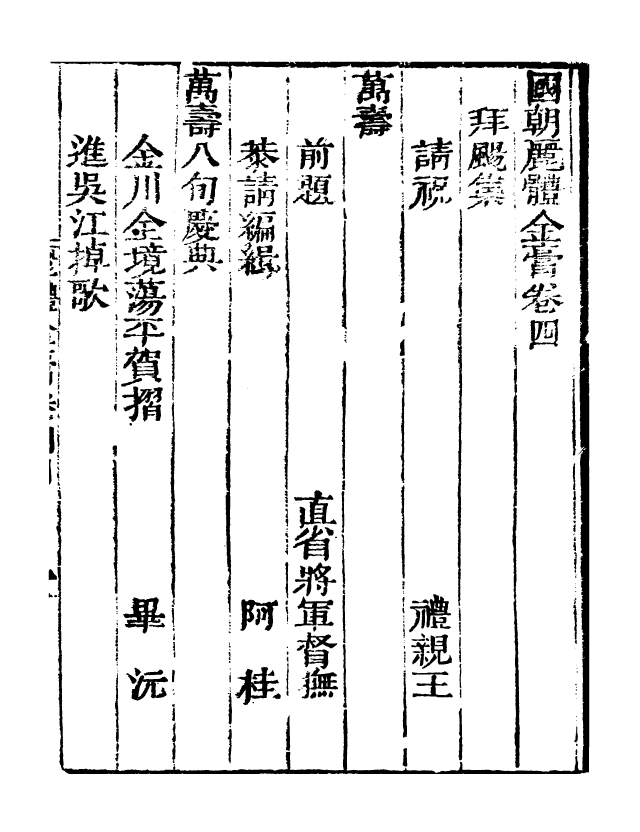 國朝麗體金膏卷四
拜颺集
請祝　禮親王
萬壽
前題　直省將軍督撫
恭請編緝　阿桂
萬壽八旬慶典
金川全境蕩平賀摺　畢沅
進吳江掉歌